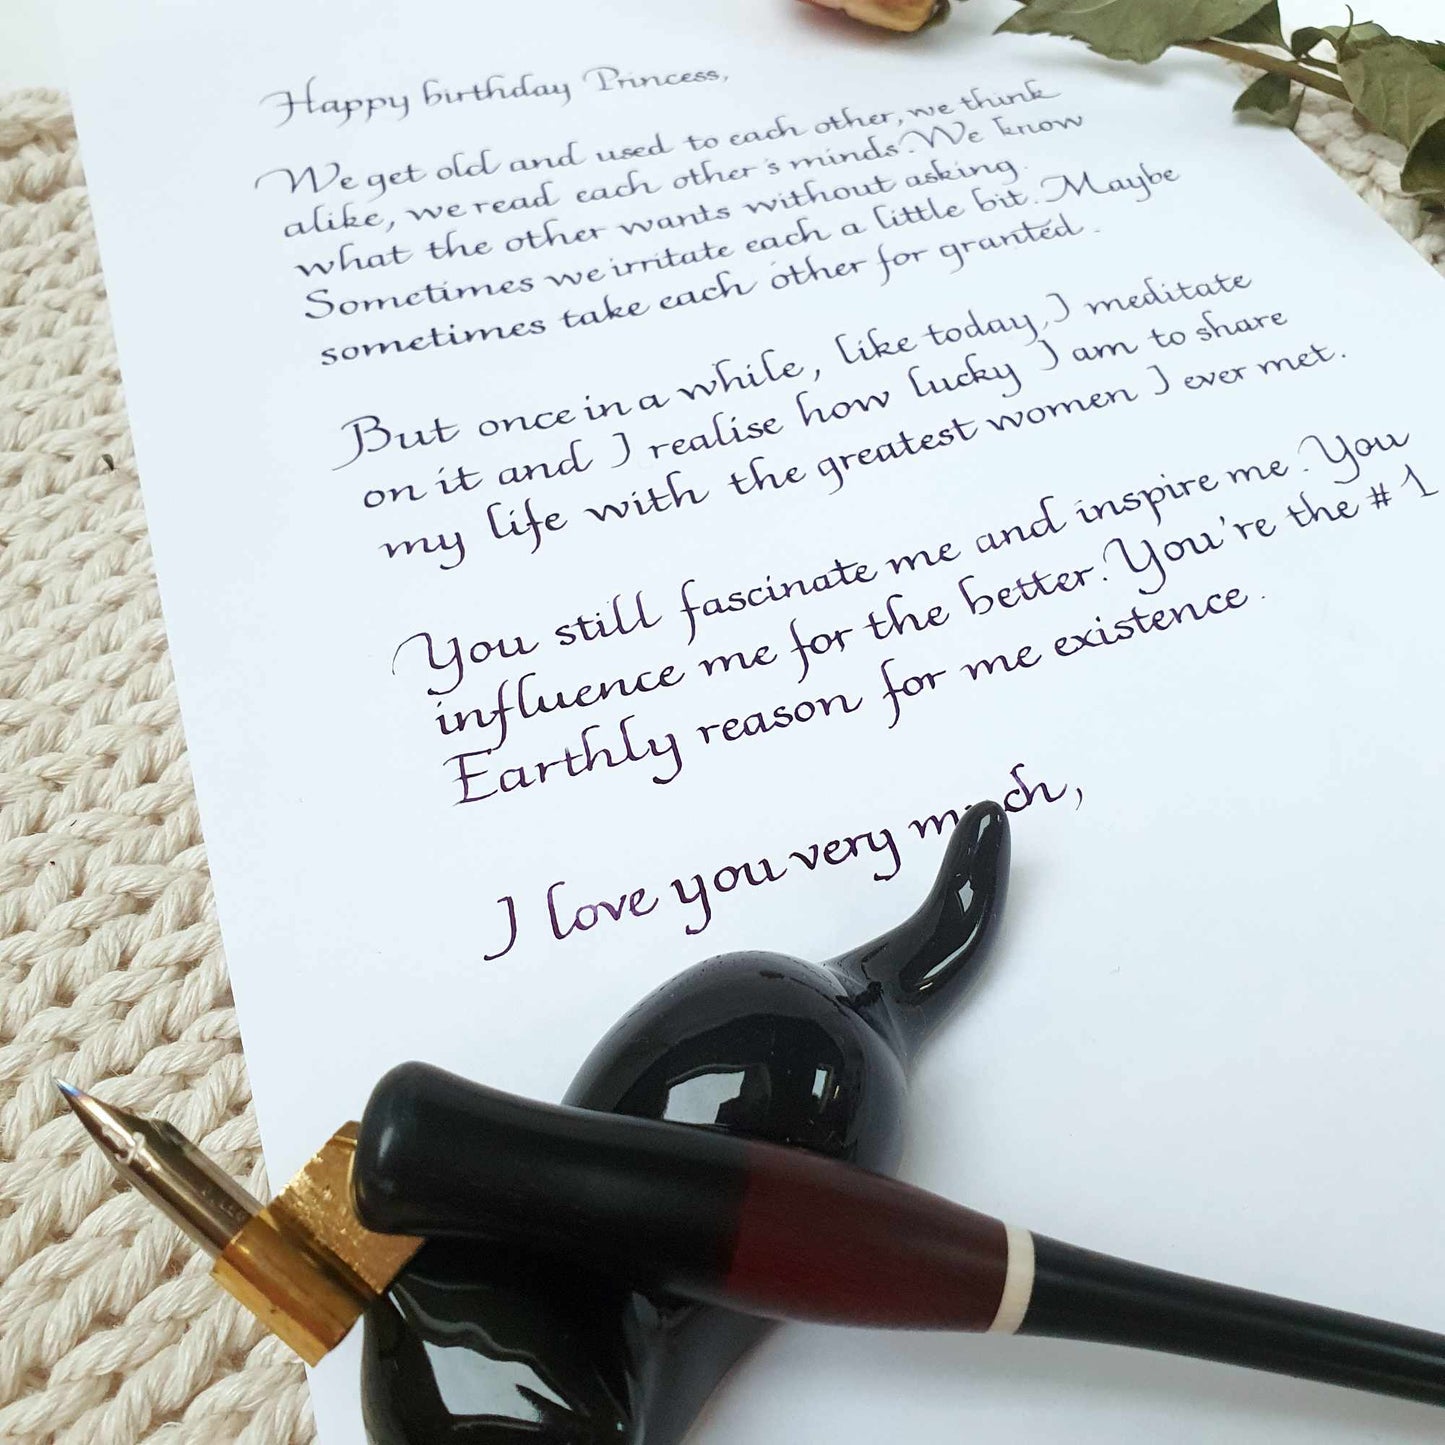 Happy birthday Princess,
We get old and used to each other, we think
alike, we read each other's minds. We know
what the other wants without asking.
Sometimes we irritate each a little bit. Maybe
sometimes take each other for granted.
But once in a while, like today, I meditate
on it and I realise how lucky I am to share
my life with the greatest women I ever met.
You still fascinate me and inspire me. You
influence me for the better. You're the #1
Earthly reason for me existence.
I love you very much,